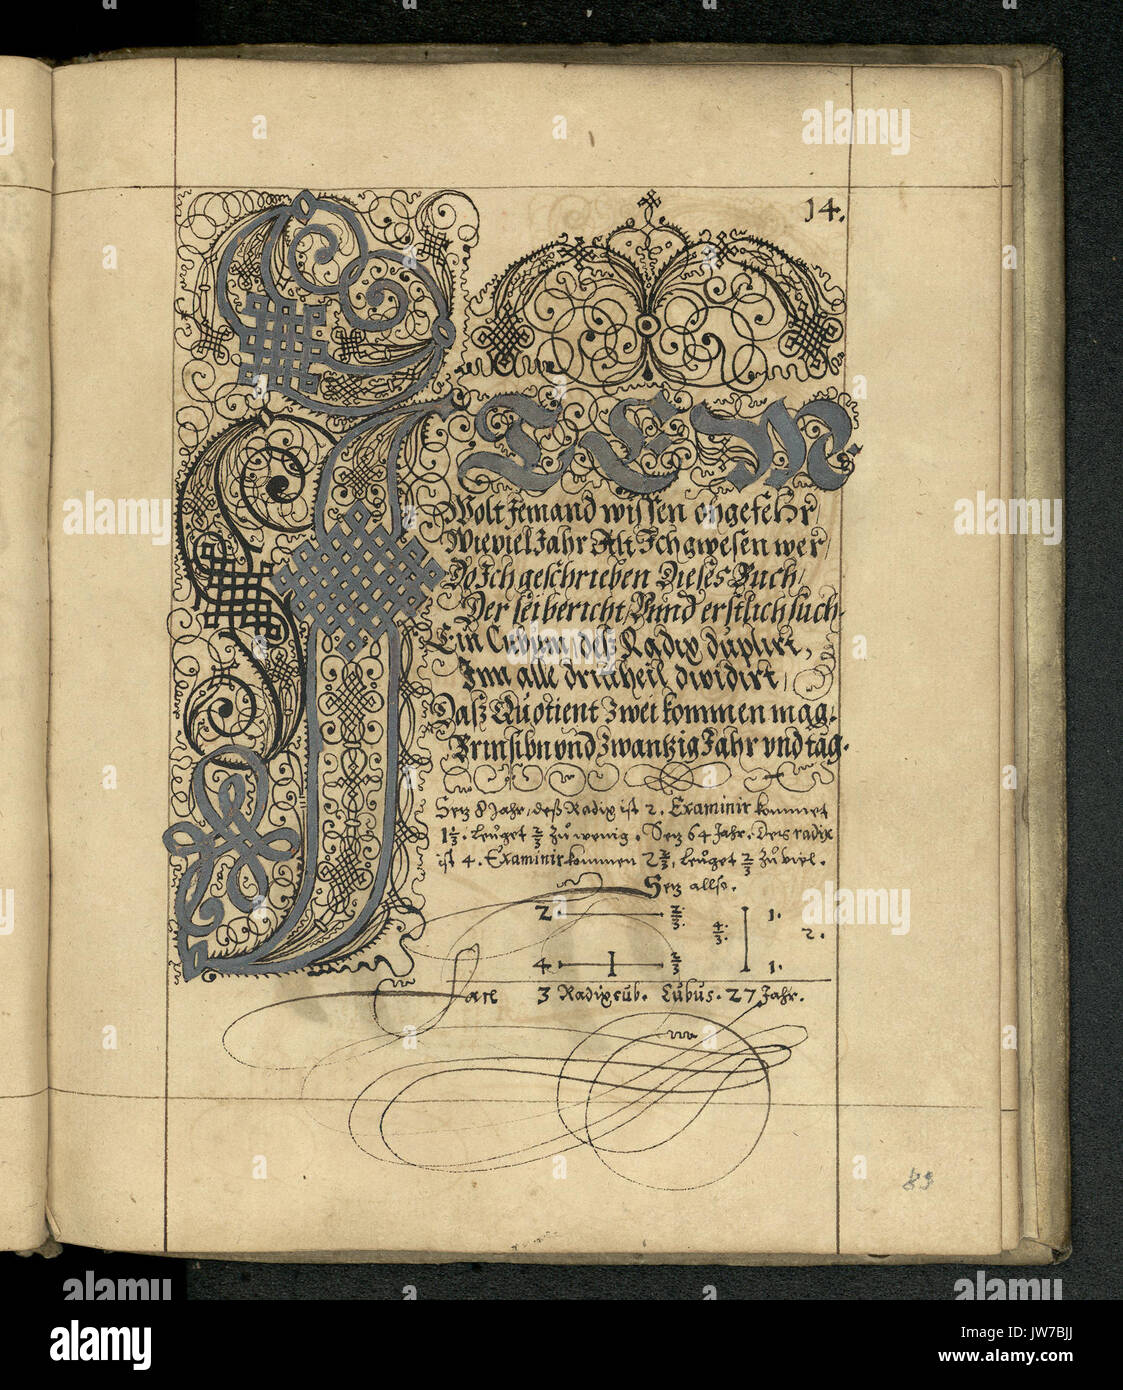 14.
ITEM.
Wolt Jemand wissen ohgefehr
Wieviel Jahr Alt Ich gwesen wer /
Do Ich geschrieben Dieses Buch /
Der sei bericht / Vund erstlich such.
Ein Cubum / deß Radix duplirt,
Inn alle drittheil dividirt /
Daß Quotient Zwei kommen mag.
Brinsibn vnd Zwantzig Jahr vnd tag.
Setz 8 Jahr, deß Radix ist 2. Examinir kommet
1 1/3. Leuget 2/3 zu wenig. Setz 64 Jahr. Ders radix
ist 4. Examinir kommen 2 2/3. Leuget 2/3 zu viel.
Setz allso.
2. 2/3. 1.
4/3. 2.
4. 2/3 1.
Facit 3 Radix cub. Cubus. 27 Jahr.
83
alamy
Image ID: JW7BJJ
www.alamy.com